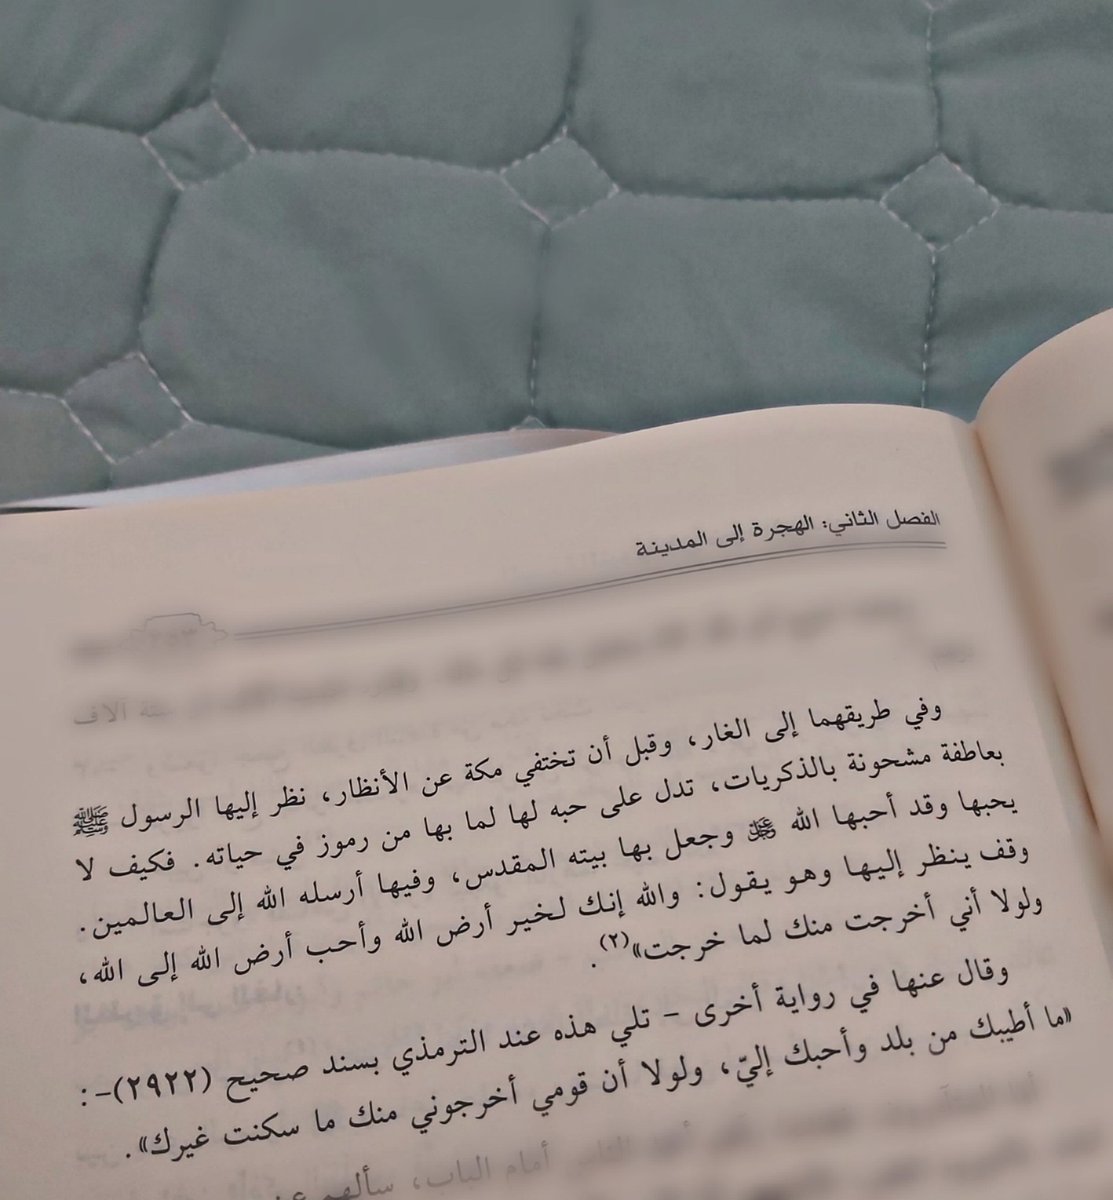 الفصل الثاني: الهجرة إلى المدينة
آلاف
وفي طريقهما إلى الغار، وقبل أن تختفي مكة عن الأنظار، نظر إليها الرسول ﷺ
بعاطفة مشحونة بالذكريات، تدل على حبه لها لما بها من رموز في حياته. فكيف لا
يحبها وقد أحبها الله ﷻ وجعل بها بيته المقدس، وفيها أرسله الله إلى العالمين.
وقف ينظر إليها وهو يقول: والله إنك لخير أرض الله وأحب أرض الله إلى الله،
ولولا أني أخرجت منك لما خرجت»(٢).
وقال عنها في رواية أخرى - تلي هذه عند الترمذي بسند صحيح (٢٩٢٢)-:
«ما أطيبك من بلد وأحبك إليّ، ولولا أن قومي أخرجوني منك ما سكنت غيرك».
أمام الباب، سألهم عن